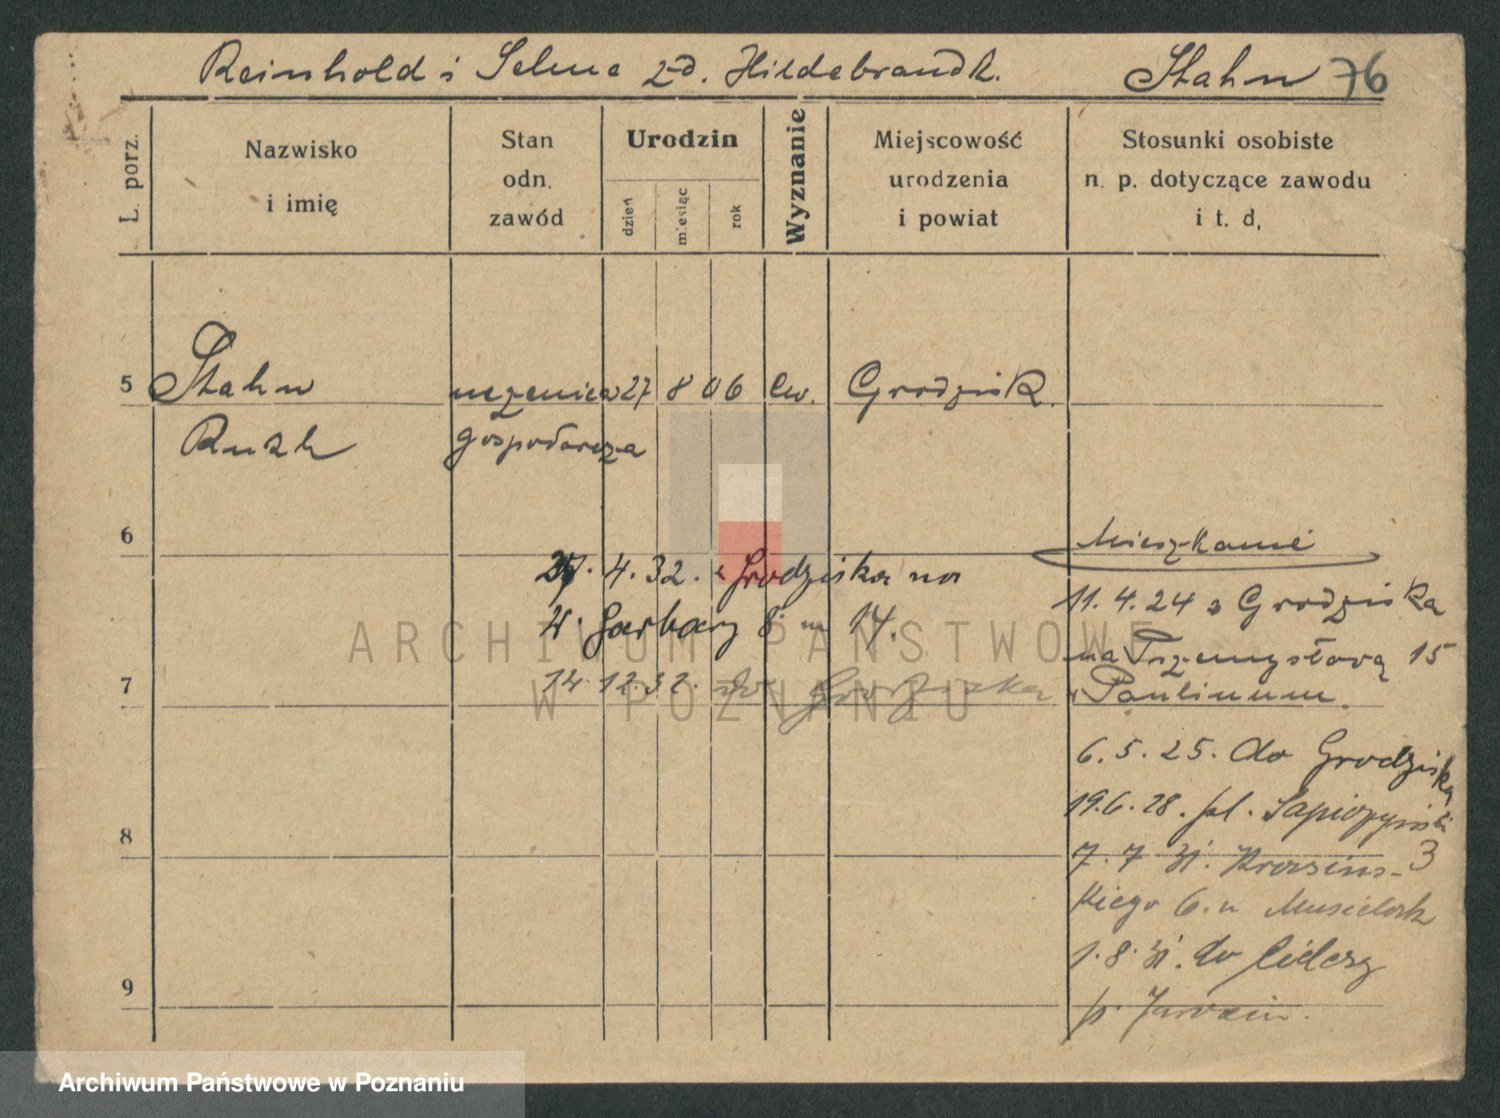 Reinhold i Selma zd. Hildebrandt. Stahn 76
L. porz.
Nazwisko
i imię
Stan
odn.
zawód
Urodzin
dzień
miesiąc
rok
Wyznanie
Miejscowość
urodzenia
i powiat
Stosunki osobiste
n. p. dotyczące zawodu
i t. d,
5 Stahn uczenica 27 8 06 Ew. Grodzisk.
Ruth gospodarcza
6
7
8
9
27. 4. 32. z Grodziska na
W. Garbary 8 m 14.
14. 12. 32. do Grodziska
Mieszkanie
11. 4. 24 z Grodziska
na Przemysłową 15
Paulinum.
6. 5. 25. do Grodziska
19. 6. 28. pl. Sapieżyński
3
7. 7. 31. Krasińs-
kiego 6. u
1. 8. 31. do
p.
ARCHIWUM PAŃSTWOWE
W POZNANIU
Archiwum Państwowe w Poznaniu